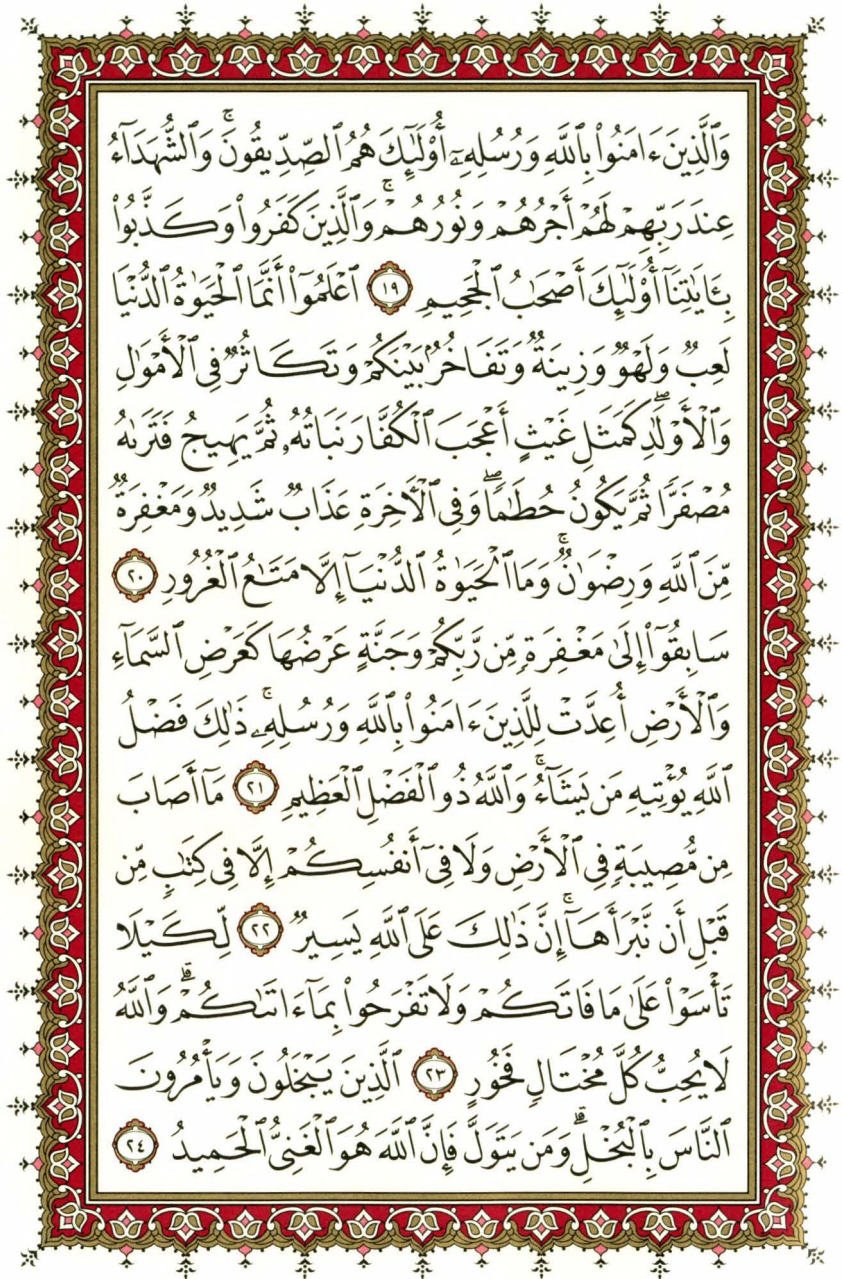 وَٱلَّذِينَ ءَامَنُوا۟ بِٱللَّهِ وَرُسُلِهِۦٓ أُو۟لَٰٓئِكَ هُمُ ٱلصِّدِّيقُونَ ۚ وَٱلشُّهَدَآءُ
عِندَ رَبِّهِمْ لَهُمْ أَجْرُهُمْ وَنُورُهُمْ ۚ وَٱلَّذِينَ كَفَرُوا۟ وَكَذَّبُوا۟
بِـَٔايَٰتِنَآ أُو۟لَٰٓئِكَ أَصْحَٰبُ ٱلْجَحِيمِ ١٩ ٱعْلَمُوٓا۟ أَنَّمَا ٱلْحَيَوٰةُ ٱلدُّنْيَا
لَعِبٌ وَلَهْوٌ وَزِينَةٌ وَتَفَاخُرٌۢ بَيْنَكُمْ وَتَكَاثُرٌ فِى ٱلْأَمْوَٰلِ
وَٱلْأَوْلَٰدِ ۖ كَمَثَلِ غَيْثٍ أَعْجَبَ ٱلْكُفَّارَ نَبَاتُهُۥ ثُمَّ يَهِيجُ فَتَرَىٰهُ
مُصْفَرًّا ثُمَّ يَكُونُ حُطَٰمًا ۖ وَفِى ٱلْءَاخِرَةِ عَذَابٌ شَدِيدٌ وَمَغْفِرَةٌ
مِّنَ ٱللَّهِ وَرِضْوَٰنٌ ۚ وَمَا ٱلْحَيَوٰةُ ٱلدُّنْيَآ إِلَّا مَتَٰعُ ٱلْغُرُورِ ٢٠
سَابِقُوٓا۟ إِلَىٰ مَغْفِرَةٍ مِّن رَّبِّكُمْ وَجَنَّةٍ عَرْضُهَا كَعَرْضِ ٱلسَّمَآءِ
وَٱلْأَرْضِ أُعِدَّتْ لِلَّذِينَ ءَامَنُوا۟ بِٱللَّهِ وَرُسُلِهِۦ ۚ ذَٰلِكَ فَضْلُ
ٱللَّهِ يُؤْتِيهِ مَن يَشَآءُ ۚ وَٱللَّهُ ذُو ٱلْفَضْلِ ٱلْعَظِيمِ ٢١ مَآ أَصَابَ
مِن مُّصِيبَةٍ فِى ٱلْأَرْضِ وَلَا فِىٓ أَنفُسِكُمْ إِلَّا فِى كِتَٰبٍ مِّن
قَبْلِ أَن نَّبْرَأَهَآ ۚ إِنَّ ذَٰلِكَ عَلَى ٱللَّهِ يَسِيرٌ ٢٢ لِّكَيْلَا
تَأْسَوْا۟ عَلَىٰ مَا فَاتَكُمْ وَلَا تَفْرَحُوا۟ بِمَآ ءَاتَىٰكُمْ ۗ وَٱللَّهُ
لَا يُحِبُّ كُلَّ مُخْتَالٍ فَخُورٍ ٢٣ ٱلَّذِينَ يَبْخَلُونَ وَيَأْمُرُونَ
ٱلنَّاسَ بِٱلْبُخْلِ ۗ وَمَن يَتَوَلَّ فَإِنَّ ٱللَّهَ هُوَ ٱلْغَنِىُّ ٱلْحَمِيدُ ٢٤